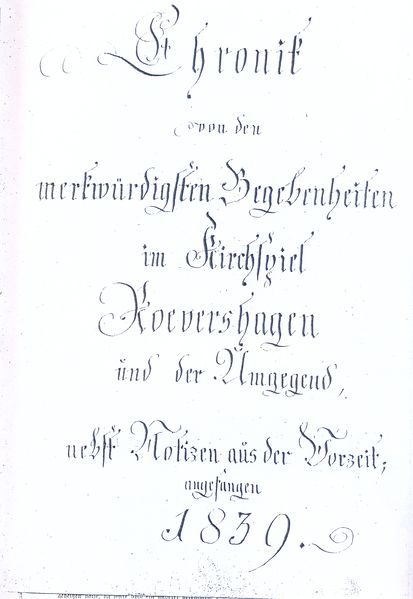 Chronik
von den
merkwürdigsten Begebenheiten
im Kirchspiel
Roevershagen
und der Umgegend,
nebst Notizen aus der Vorzeit,
angefangen
1839.